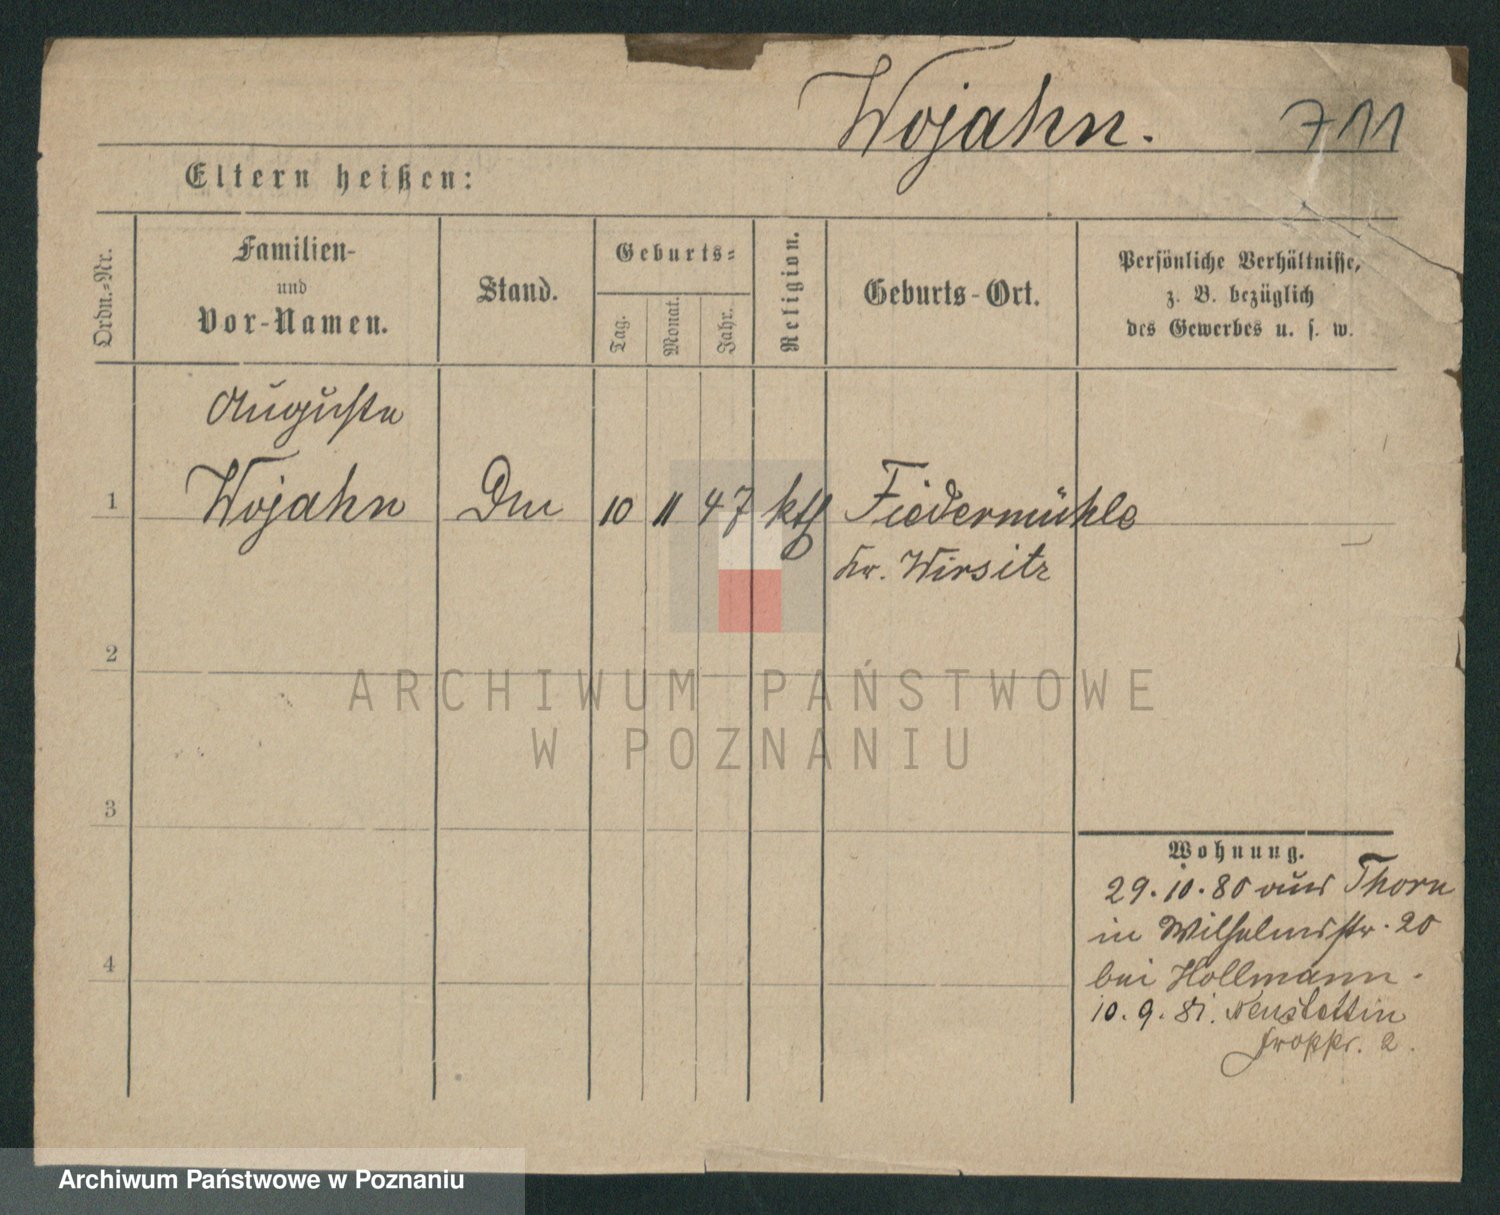 Wojahn. 711
Eltern heißen:
Ordn.-Nr.
Familien-
und
Vor-Namen.
Stand.
Geburts-
Tag.
Monat.
Jahr.
Religion.
Geburts-Ort.
Persönliche Verhältnisse,
z. B. bezüglich
des Gewerbes u. s. w.
Auguste
1 Wojahn 10 11 47 kth Fiedermühle
Kr. Wirsitz
2
ARCHIWUM PAŃSTWOWE
W POZNANIU
3
Wohnung.
29.10.80 aus Thorn
in Wilhelmsstr. 20
4
bei Hollmann.
10.9.81. Neustettin
2.
Archiwum Państwowe w Poznaniu